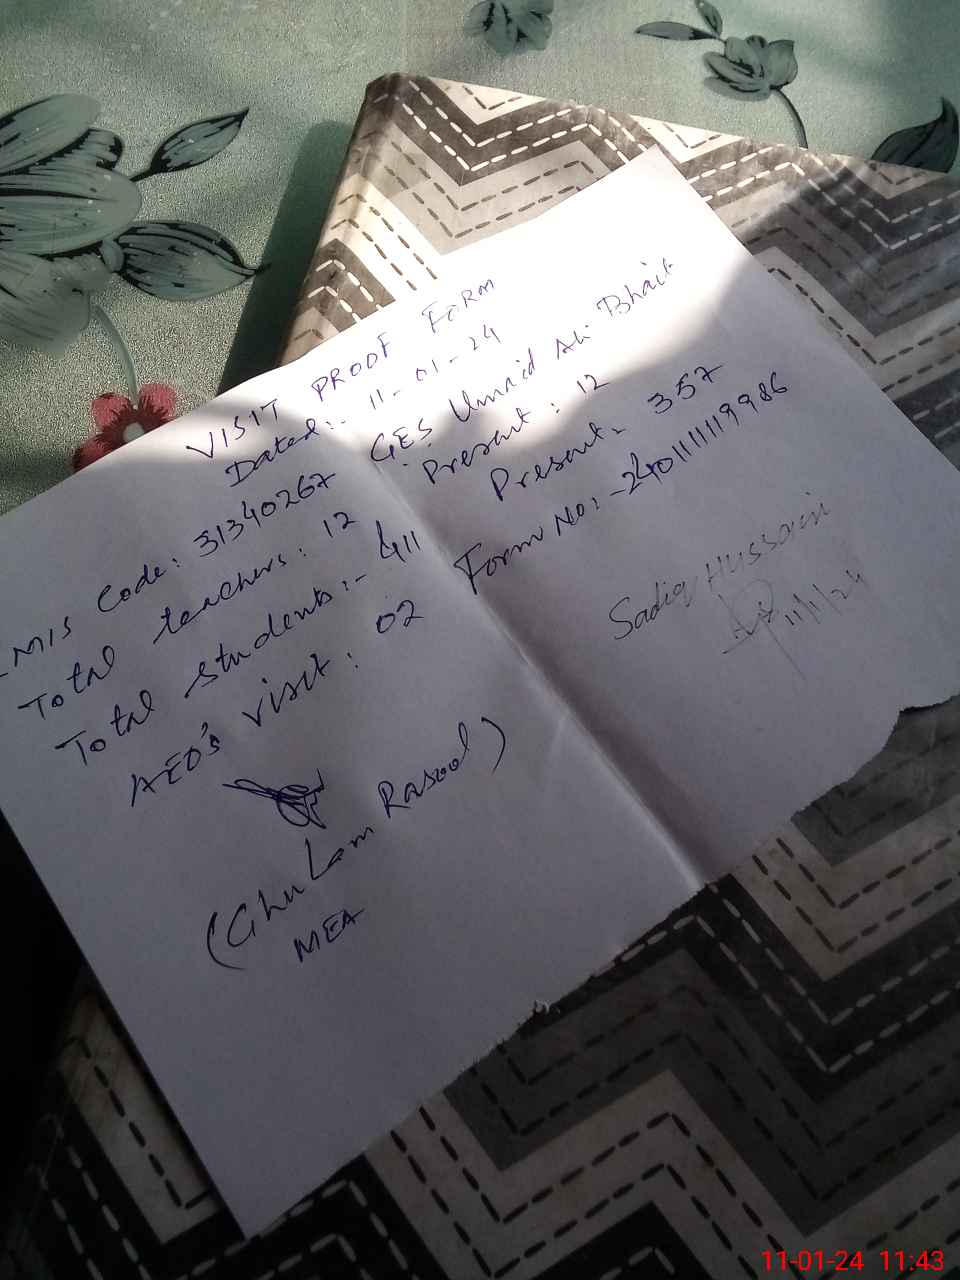 VISIT PROOF FORM
Dated:- 11-01-24
EMIS Code: 31340267 GES Umaid Ali Bhait
Total teachers: 12 Present: 12
Total students:- 411 Present- 357
AEO's visit: 02 Form No:-
Sadiq Hussain
11/1/24
(Ghulam Rasool)
MEA
11-01-24 11:43